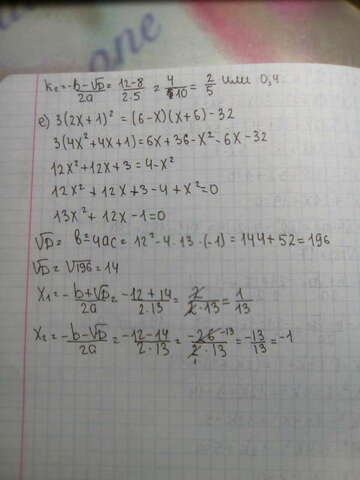 one
k₂ = -b-√D/2a = 12-8/2·5 = 4/10 = 2/5 или 0,4
е) 3(2x+1)² = (6-x)(x+6)-32
3(4x²+4x+1)=6x+36-x²-6x-32
12x²+12x+3=4-x²
12x²+12x+3-4+x²=0
13x²+12x-1=0
√D = b²-4ac = 12²-4·13·(-1)=144+52=196
√D=√196=14
x₁=-b+√D/2a=-12+14/2·13=2/2·13=1/13
x₂=-b-√D/2a=-12-14/2·13=-26 -13/2·13=-13/13=-1